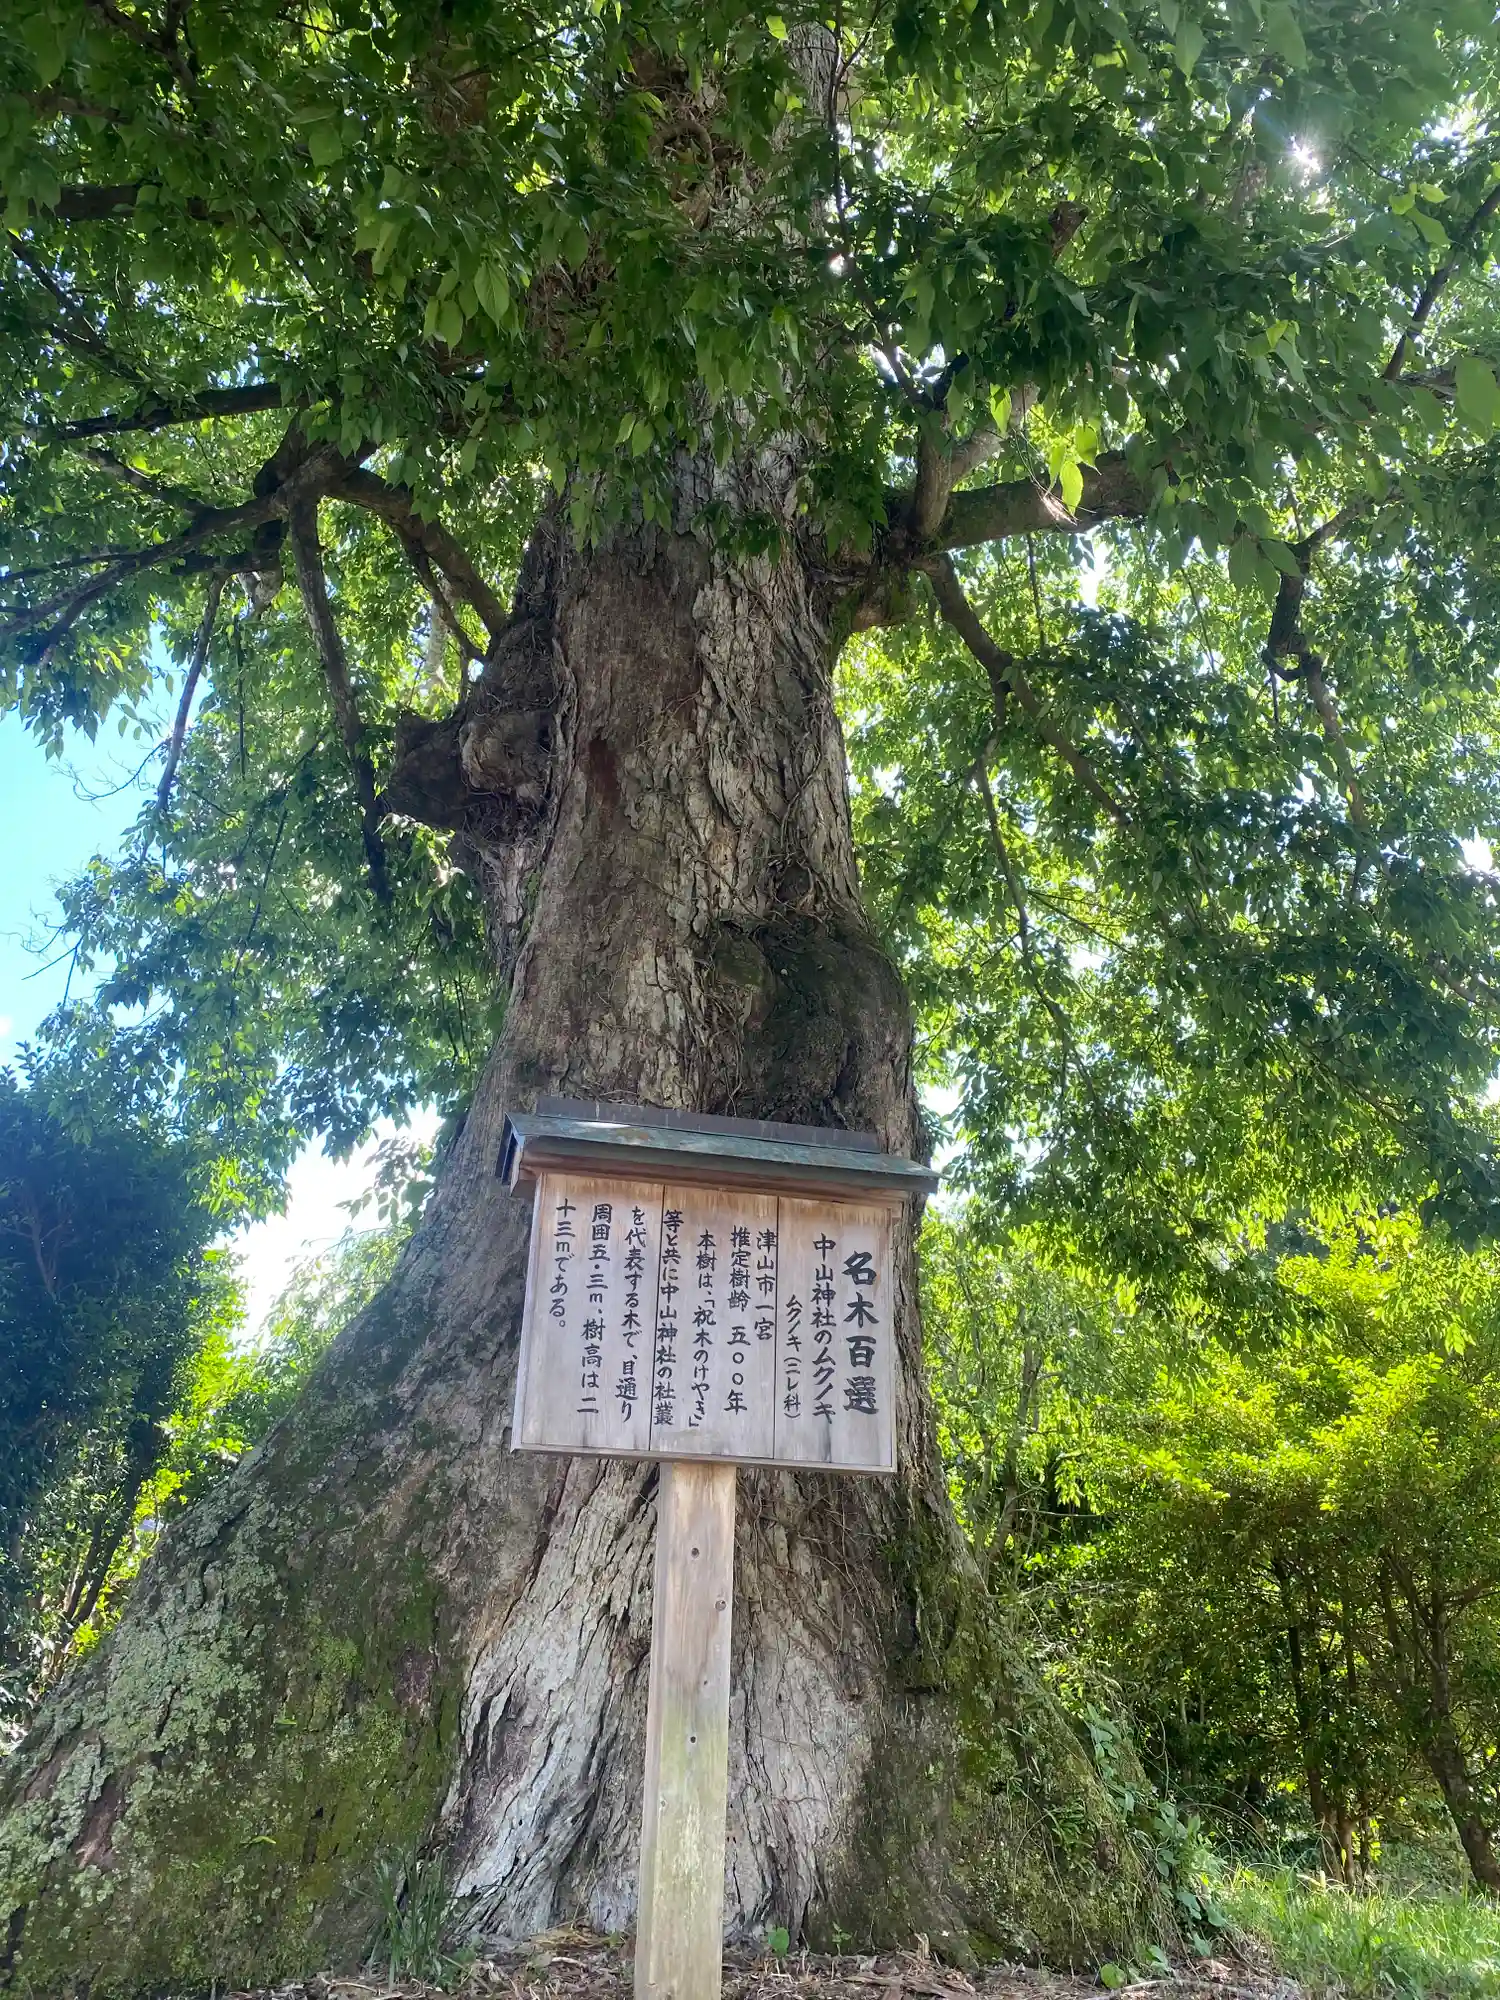 名木百選
中山神社のムクノキ
ムクノキ(ニレ科)
津山市一宮
推定樹齢 五〇〇年
本樹は、「祝木のけやき」
等と共に中山神社の社叢
を代表する木で、目通り
周囲五・三m、樹高は二
十三mである。